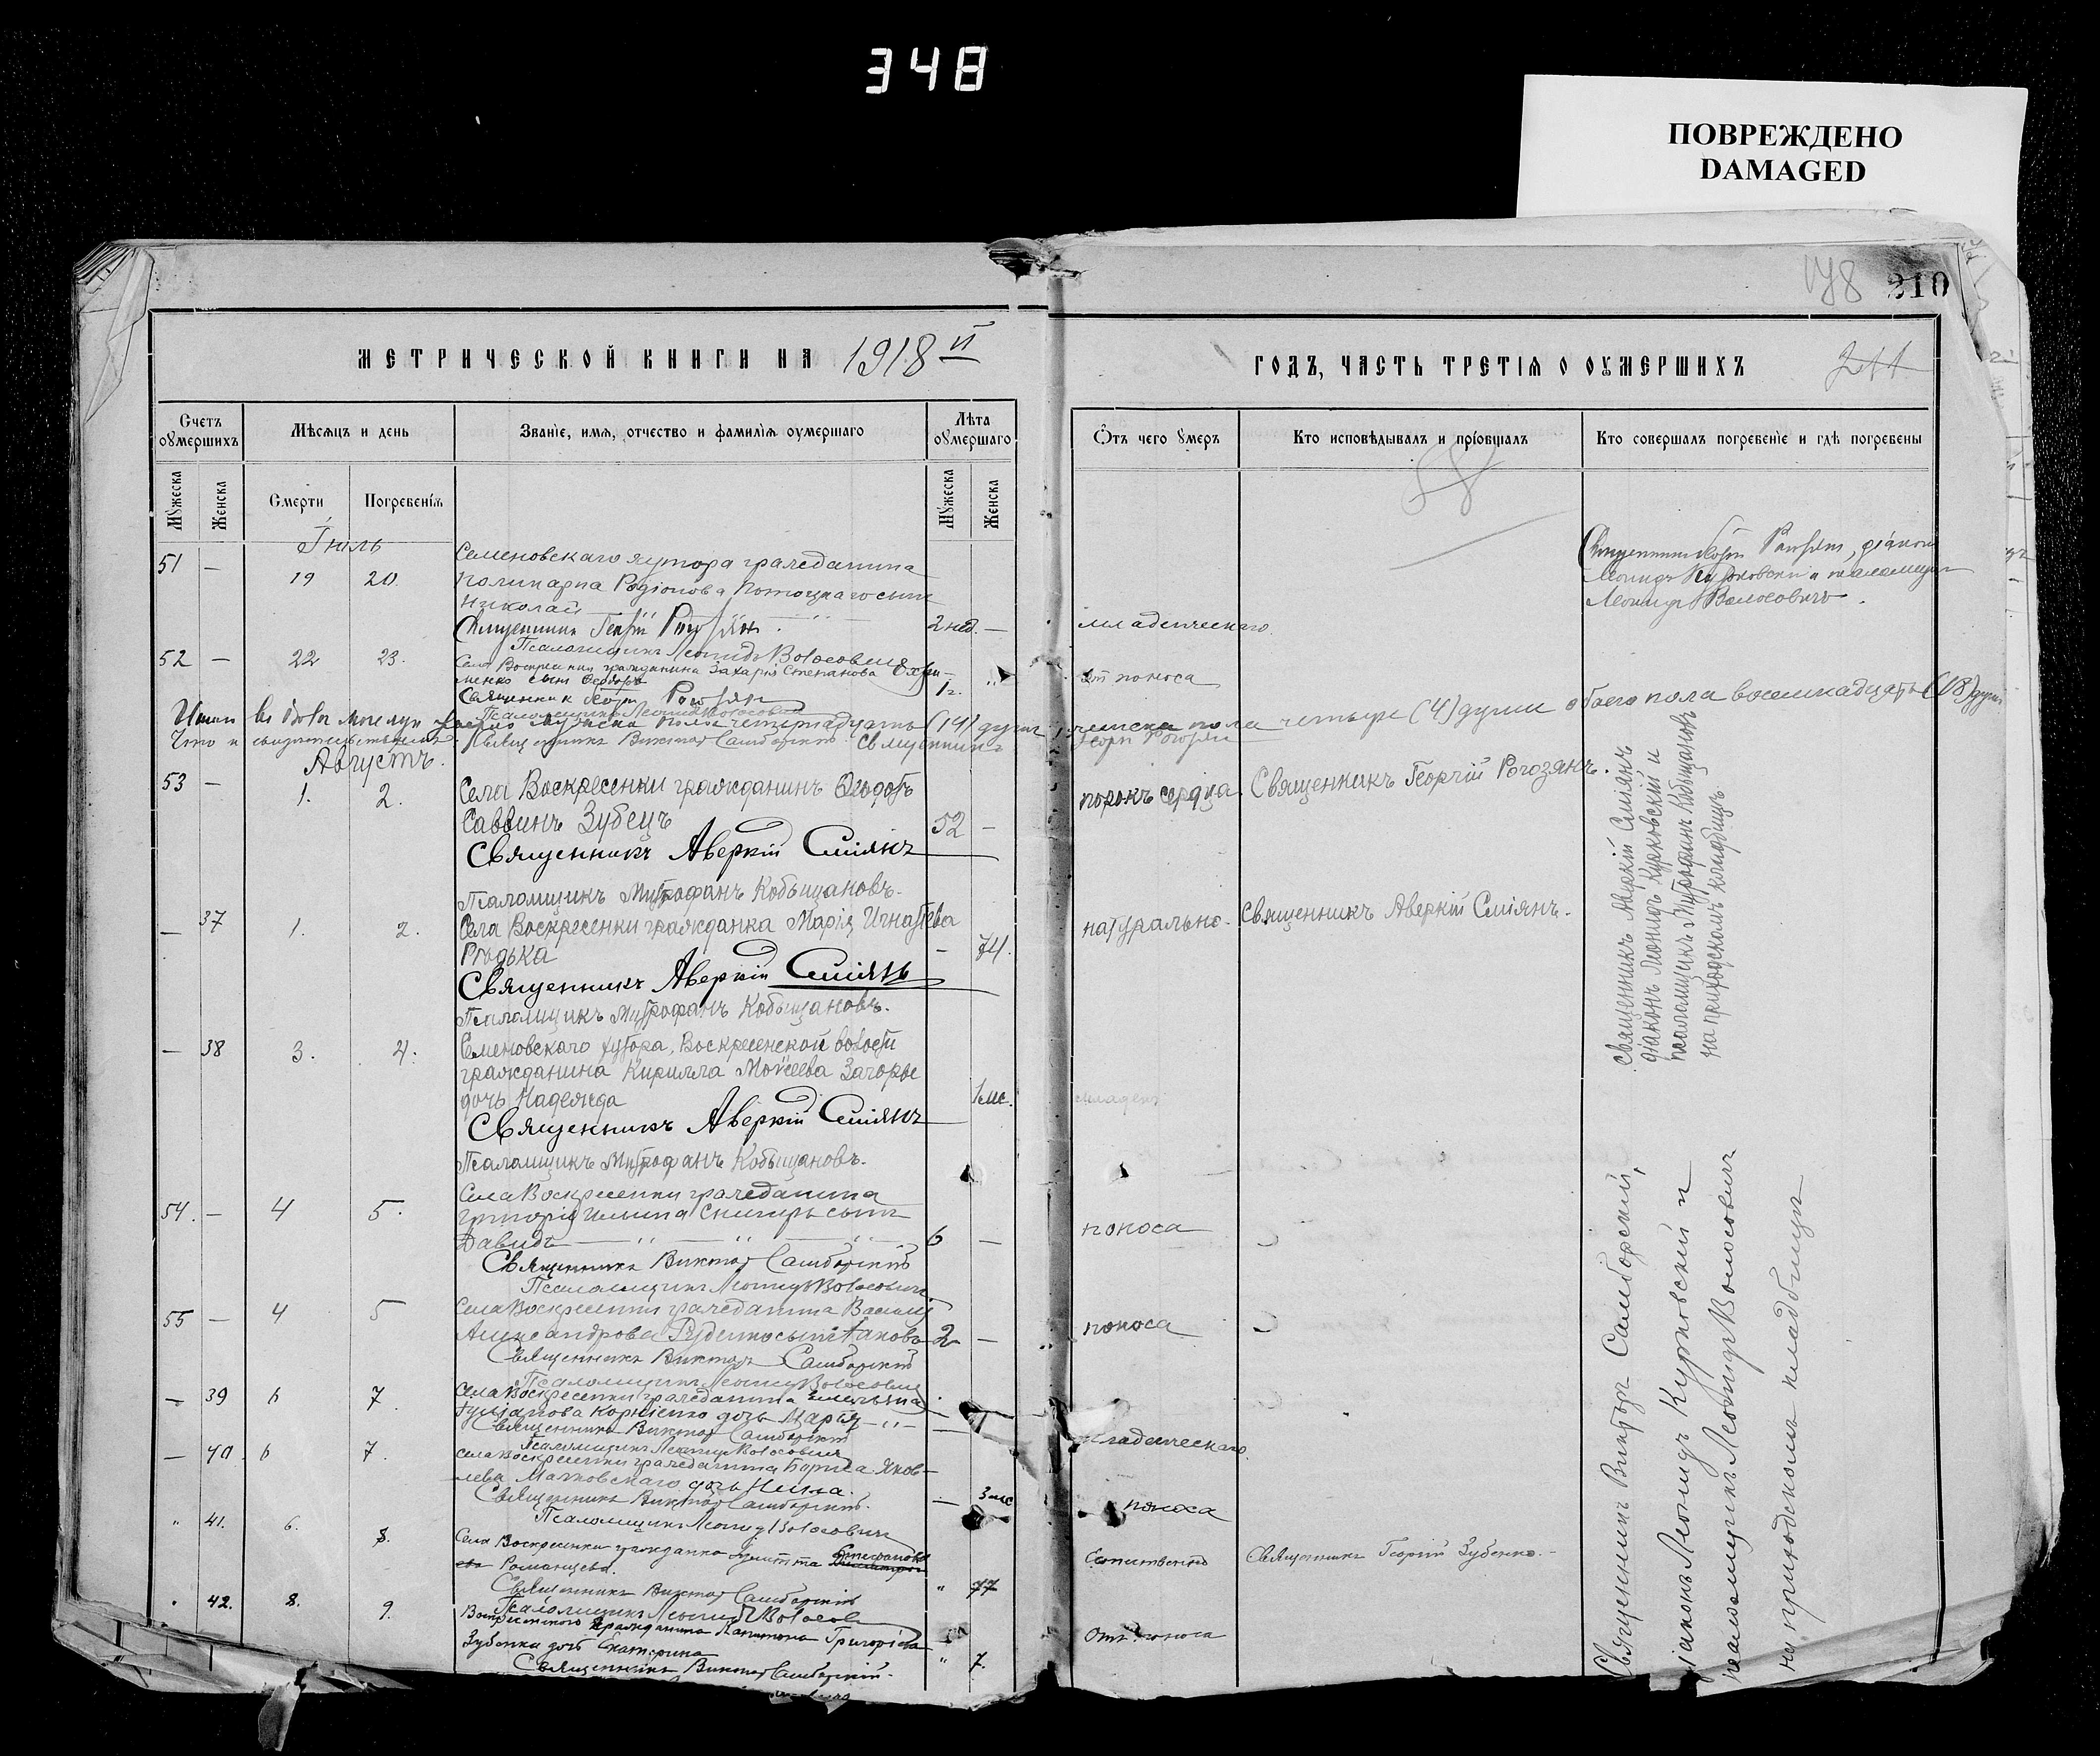 348
ПОВРЕЖДЕНО
DAMAGED
178 210
МЕТРИЧЕСКОЙ КНИГИ НА 1918 й
ГОДЪ, ЧАСТЬ ТРЕТІЯ О ОУМЕРШИХЪ 211
Счетъ оумершихъ
Мѣсяцъ и день
Званіе, имя, отчество и фамилія оумершаго
Лѣта оумершаго
Отъ чего умеръ
Кто исповѣдывалъ и пріобщалъ
Кто совершалъ погребеніе и гдѣ погребены
Мужеска
Женска
Смерти
Погребенія
Мужеска
Женска
58
Іюль
51 — 19 20. Семеновскаго хутора гражданина
Поликарпа Родіонова Потоцкаго сынъ
Николай
Священникъ Георгій Рогозянъ. 2 нед. — младенческаго
Псаломщикъ Леонидъ Волосовичъ
Священникъ Георгій Рогозянъ, діаконъ
Леонидъ Курковскій и псаломщикъ
Леонидъ Волосовичъ.
52 — 22 23. Села Воскресенки гражданина Захарія Степанова
менко сынъ Ѳеодоръ 1 г. " отъ поноса
Священникъ Георг. Рогозянъ
Псаломщикъ Леонидъ Волосовичъ
Итого въ іюлѣ месяцѣ умерло мужска пола четырнадцать (14) душъ, женска пола четыре (4) души обоего пола восемнадцать (18) душъ
Что и свидетельствуемъ. Священникъ Викторъ Самборскій. Священникъ Георг. Рогозян
Августъ.
53 — 1. 2. Села Воскресенки гражданинъ Ѳеодоръ
Саввинъ Зубецъ 52 — порокъ сердца. Священникъ Георгій Рогозянъ.
Священникъ Аверкій Сміянъ
Псаломщикъ Митрофанъ Кобыщановъ.
— 37 1. 2. Села Воскресенки гражданка Марія Игнатіева
Родька — 74. натурально. Священникъ Аверкій Сміянъ.
Священникъ Аверкій Сміянъ
Псаломщикъ Митрофанъ Кобыщановъ.
— 38 3. 4. Семеновскаго хутора, Воскресенской волости
гражданина Кирилла Мойсеева Загорье
дочь Надежда 1 мс. младен.
Священникъ Аверкій Сміянъ
Псаломщикъ Митрофанъ Кобыщановъ.
Священникъ Аверкій Сміянъ
діаконъ Леонидъ Курковскій и
псаломщикъ Митрофанъ Кобыщановъ
на приходскомъ кладбищѣ
54. — 4 5. Села Воскресенки гражданина
Григорія Ильина Снигирь сынъ
Давидъ — " — " — 6 — поноса
Священникъ Викторъ Самборскій
Псаломщикъ Леонидъ Волосовичъ
55 — 4 5 Села Воскресенки гражданина Василія
Александрова Руденко сынъ Іаковъ 2 — поноса
Священникъ Викторъ Самборскій
Псаломщикъ Леонидъ Волосовичъ
— 39 6 7. Села Воскресенки гражданина Емельяна
Іуліанова Корніенко дочь Марія — " —
Священникъ Викторъ Самборскій младенческаго
Псаломщикъ Леонидъ Волосовичъ
— 40. 6 7. Села Воскресенки гражданина Бориса Яков-
лева Маховскаго дочь — 3 мс поноса
Священникъ Викторъ Самборскій.
Псаломщикъ Леонид Волосович
" 41. 6. 8. Села Воскресенки гражданка Стефанова
Романцева. " 77 Естественно Священникъ Георгій Зубенко. —
Священникъ Викторъ Самборскій
Псаломщикъ Леонид Волосов
42. 8. 9. гражданина Капитона Григоріева
Зубенка дочь Екатерина " 7. Отъ поноса
Священникъ Викторъ Самборскій.
Священникъ Викторъ Самборскій,
діаконъ Леонидъ Курковскій и
псаломщикъ Леонидъ Волосовичъ
на приходскомъ кладбищѣ